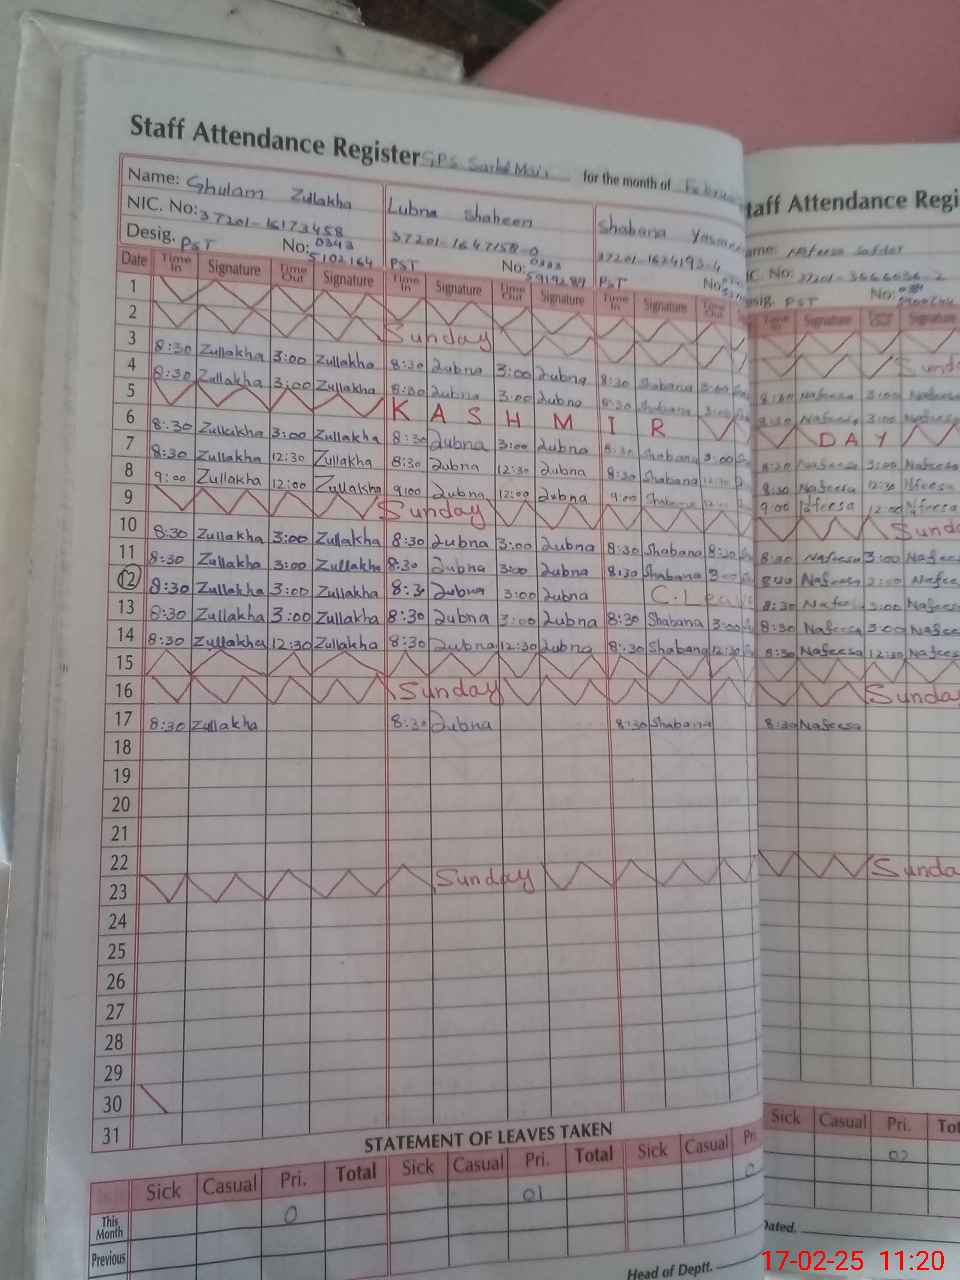 Staff Attendance Register GPS for the month of
Name: Ghulam Zullakha Lubna Shaheen Shabana
NIC. No: 37201-16173458 37201-1647158-0 37201-1624193-4
Desig. PST No: 0343 5102164 PST No: PST No:
Date Time In Signature Time Out Signature Time In Signature Time Out Signature Time In Signature Time Out
1
2 Sunday
3 8:30 Zullakha 3:00 Zullakha 8:30 Lubna 3:00 Lubna 8:30 Shabana 3:00
4 8:30 Zullakha 3:00 Zullakha 8:30 Lubna 3:00 Lubna 8:30 Shabana
5 K A S H M I R
6 8:30 Zullakha 3:00 Zullakha 8:30 Lubna 3:00 Lubna 8:30 Shabana 3:00
7 8:30 Zullakha 12:30 Zullakha 8:30 Lubna 12:30 Lubna 8:30 Shabana
8 9:00 Zullakha 12:00 Zullakha 9:00 Lubna 12:00 Lubna 9:00 Shabana
9 Sunday
10 8:30 Zullakha 3:00 Zullakha 8:30 Lubna 3:00 Lubna 8:30 Shabana 8:30
11 8:30 Zullakha 3:00 Zullakha 8:30 Lubna 3:00 Lubna 8:30 Shabana
12 8:30 Zullakha 3:00 Zullakha 8:30 Lubna 3:00 Lubna C.Leave
13 8:30 Zullakha 3:00 Zullakha 8:30 Lubna 3:00 Lubna 8:30 Shabana 3:00
14 8:30 Zullakha 12:30 Zullakha 8:30 Lubna 12:30 Lubna 8:30 Shabana 12:30
15
16 Sunday
17 8:30 Zullakha 8:30 Lubna 8:30 Shabana
18
19
20
21
22
23 Sunday
24
25
26
27
28
29
30
31
STATEMENT OF LEAVES TAKEN
Sick Casual Pri. Total Sick Casual Pri. Total Sick Casual
This Month 0 01 0
Previous
Head of Deptt.
taff Attendance Regi
37201-3666636-2
PST No:
Signature Signature
Sund
8:30 Nafeesa 3:00 Nafeesa
8:30 Nafeesa 3:00 Nafeesa
D A Y
8:30 Nafeesa 3:00 Nafeesa
8:30 Nafeesa 12:30 Nfeesa
9:00 Nfeesa 12:00 Nfeesa
Sund
8:30 Nafeesa 3:00 Nafees
Nafeesa Nafee
8:30 3:00 Nafees
8:30 Nafeesa 3:00 Nafees
8:30 Nafeesa 12:30 Nafees
Sunday
8:30 Nafeesa
Sunda
Sick Casual Pri. Tot
Dated.
17-02-25 11:20